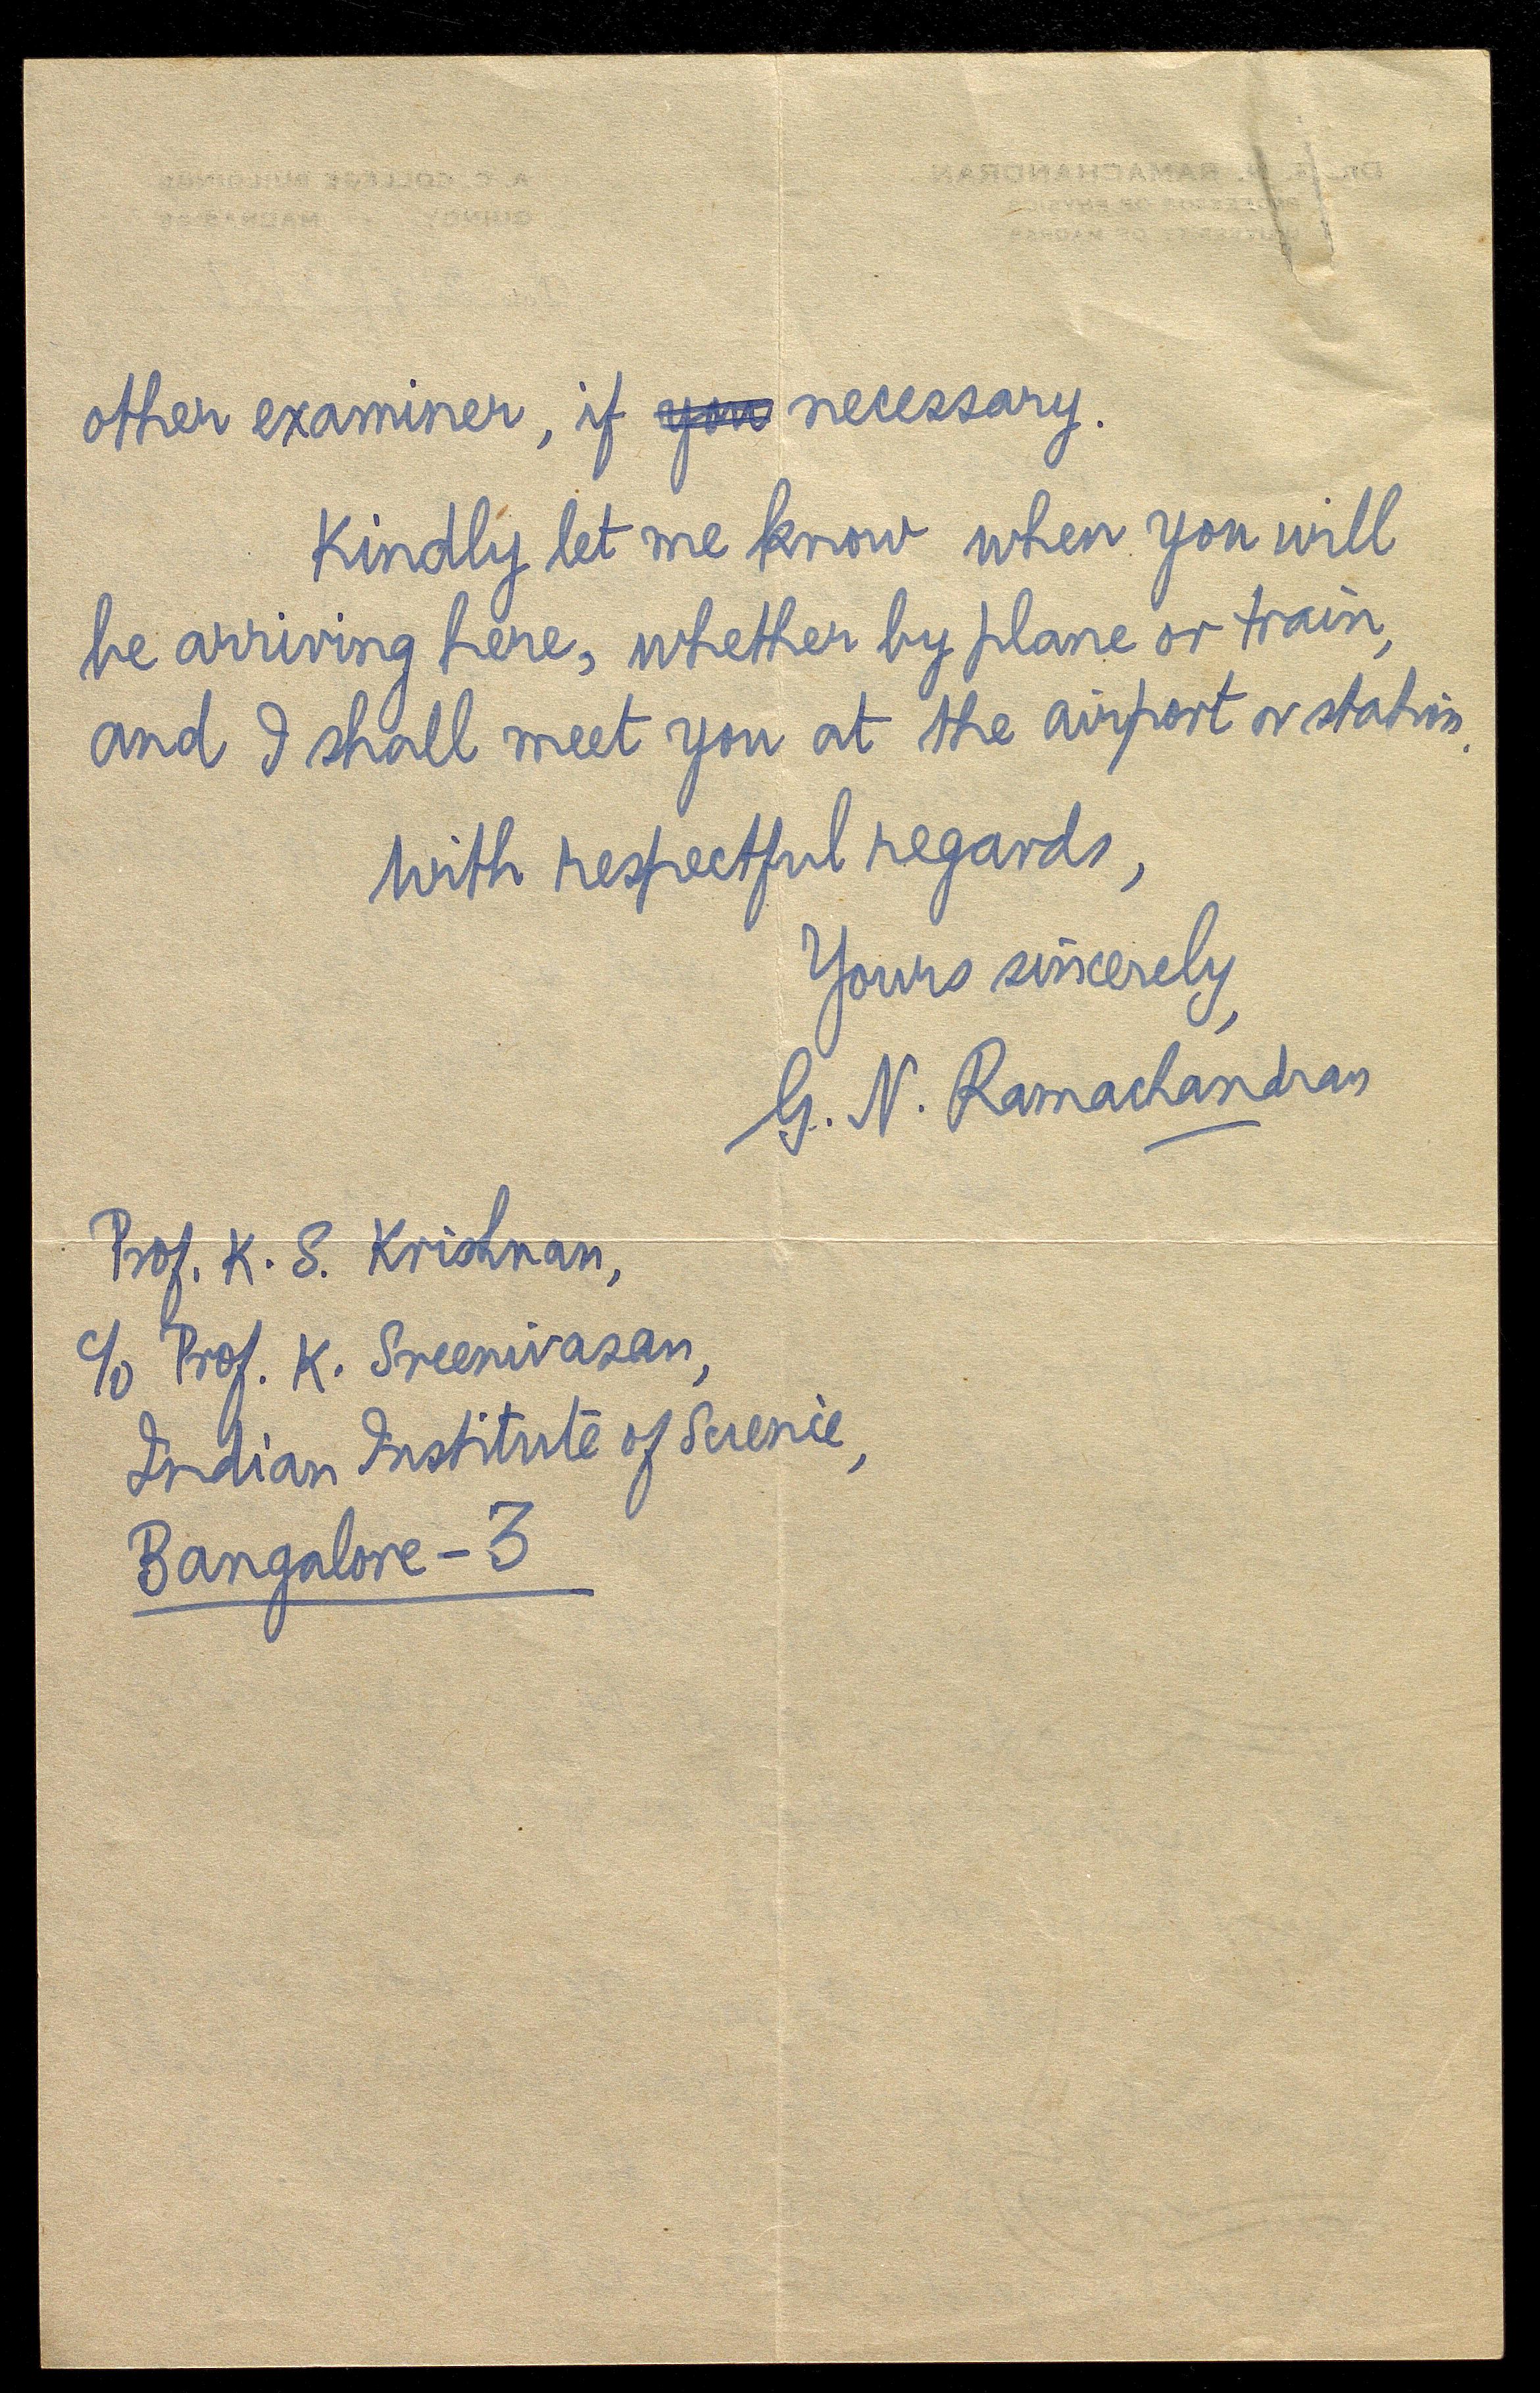 other examiner, if you necessary.
Kindly let me know when you will
be arriving here, whether by plane or train,
and I shall meet you at the airport or station.
With respectful regards,
Yours sincerely,
G. N. Ramachandran
Prof. K. S. Krishnan,
c/o Prof. K. Sreenivasan,
Indian Institute of Science,
Bangalore - 3